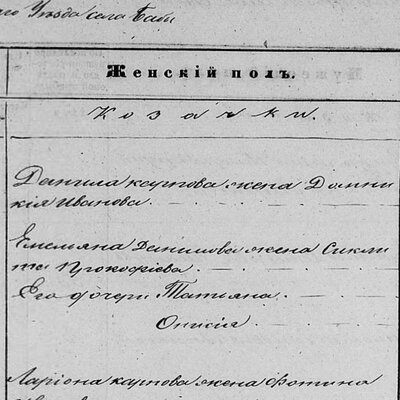 Уѣзда села Баби
Женскій полъ.
Козачки.
Данила карпова жена Домни
кія Иванова.
Емельяна Данилова жена Сикли
та Прокофіева.
Его дочери Татьяна.
Онисія.
Ларіона карпова жена Фотина